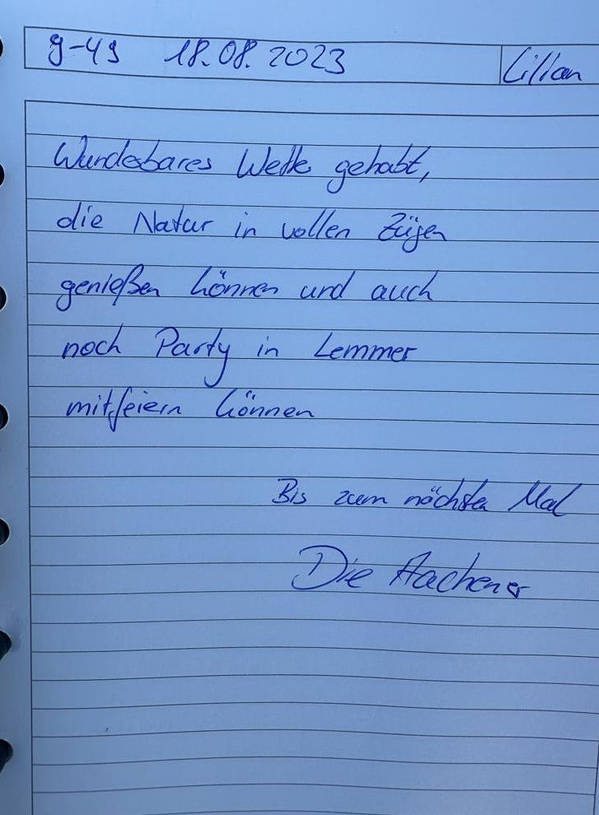 9-49 18.08.2023 Lillan
Wunderbares Wetter gehabt,
die Natur in vollen Zügen
genießen können und auch
noch Party in Lemmer
mitfeiern können
Bis zum nächsten Mal
Die Aachener